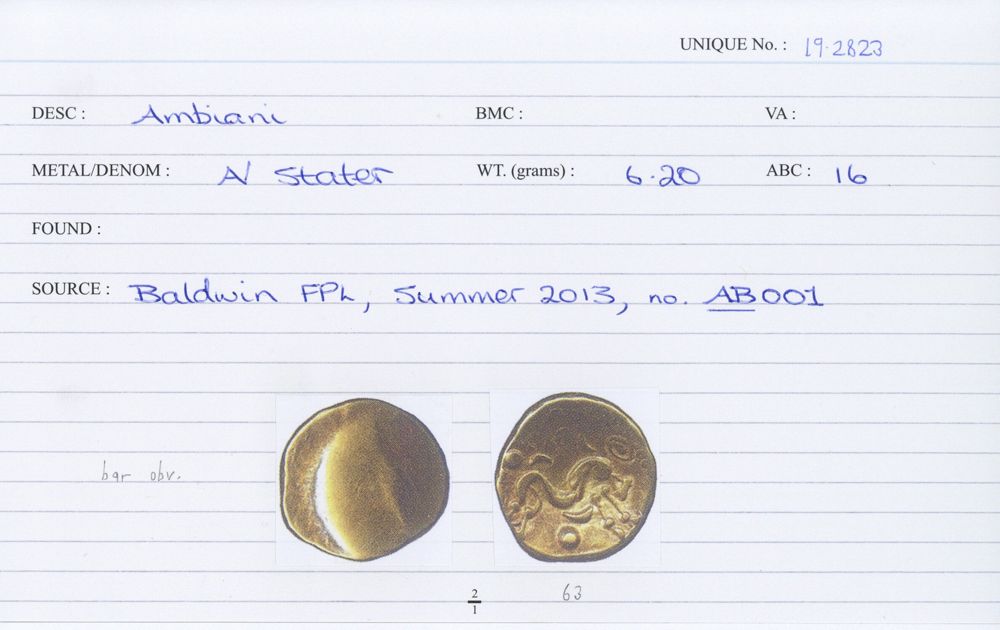 UNIQUE No. : 19.2823
DESC : Ambiani BMC : VA :
METAL/DENOM : A/ Stater WT. (grams) : 6.20 ABC : 16
FOUND :
SOURCE : Baldwin FPL, Summer 2013, no. AB001
bar obv.
2/1 63